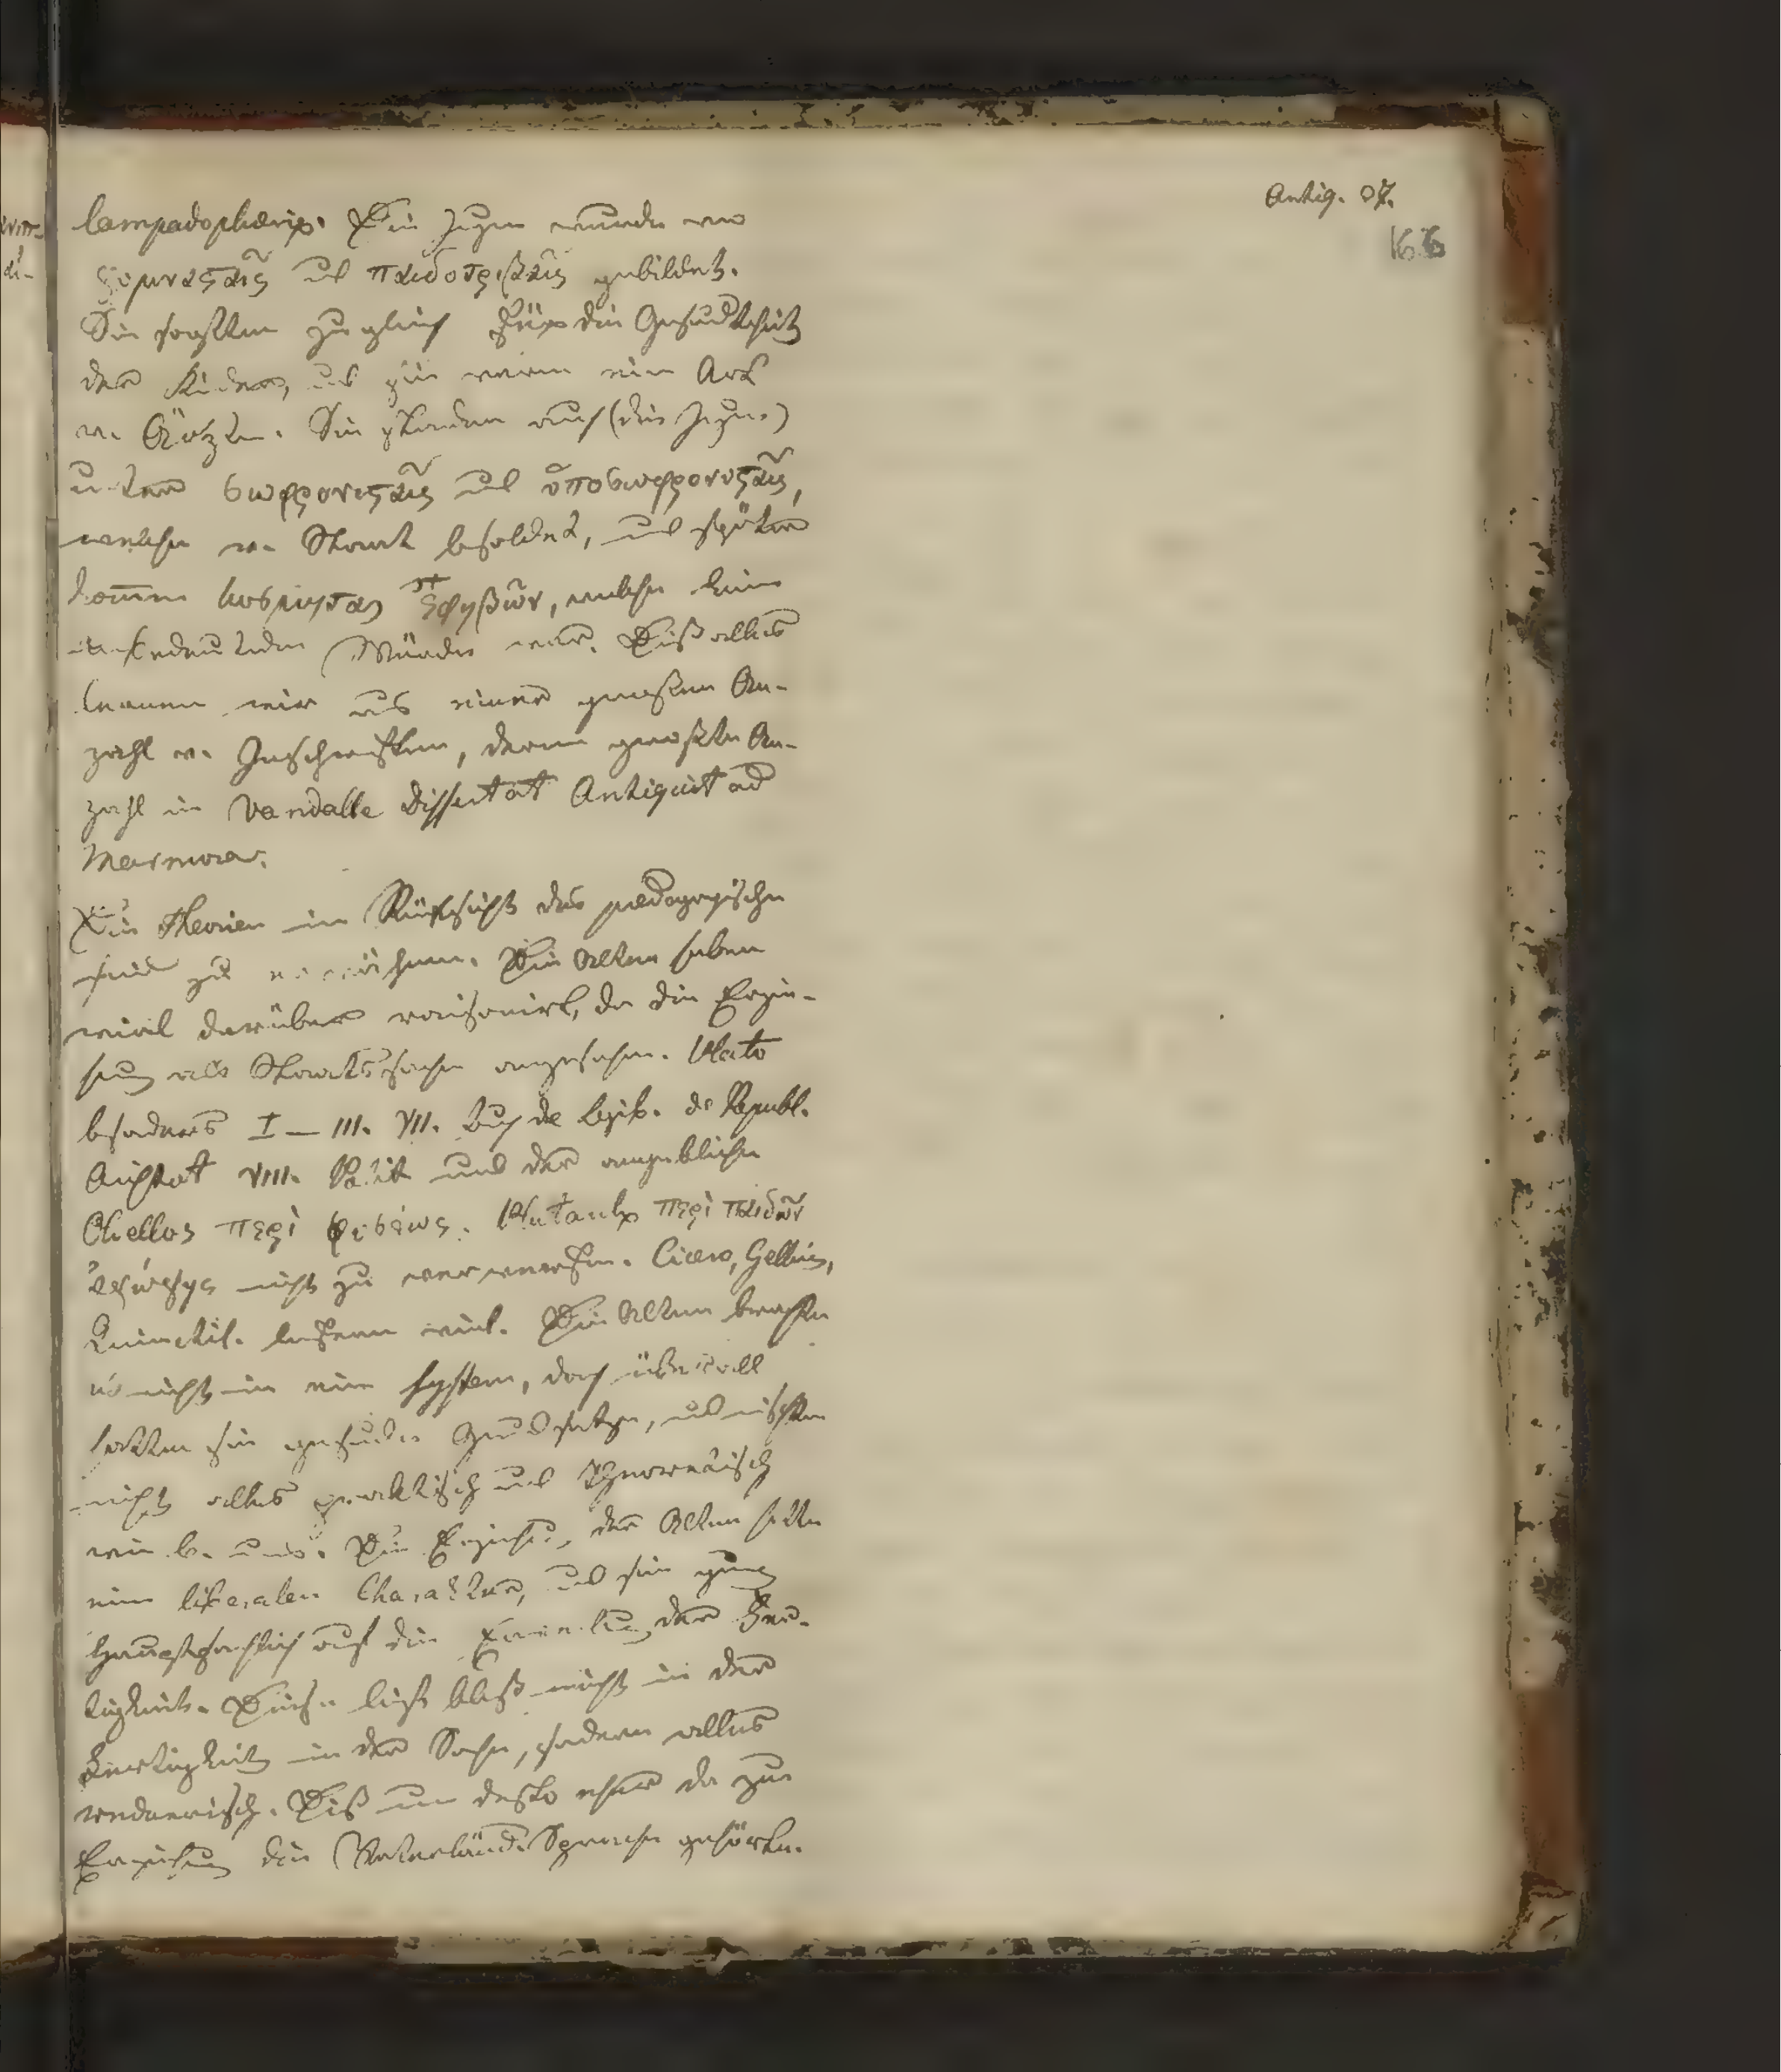 Antiq. 07.
166
lampadophorie. Die Jugend wurde von
γυμναςαῖς und παιδοτριβαῖς gebildet.
Sie sorgten zugleich für die Gesundheit
der Kinder, und sie waren eine Art
v. Ärzten. Sie standen auch (die Jugend)
unter σωφρονιςαῖς und ὑποσωφρονιςαῖς,
welche v. Staat besoldet, und später
komen κοσμηται ἐφηβῶν, welche keine
unbedeutende Würde war. Diß alles
kennen wir aus einer großen An-
zahl v. Inschriften, deren größte An-
zahl in Vandalle Dissertat Antiquit ad
Marmora.
Die Theorien in Rücksicht des pædagogischen
sind zu erwähnen. Die Alten haben
viel darüber raisonirt, da die Erzie-
hung als Staatssache angesehen. Plato
besonders I – III. VII. Buch de legib. de Republ.
Aristot VIII. Polit und der angebliche
Ocellos περὶ φυσέως. Plutarch περὶ παιδῶν
ἀγώγης nicht zu verwerfen. Cicero, Gellius,
Quinctil. liefern viel. Die Alten brachten
es nicht in ein System, doch überall
hatten sie gesunde Grundsätze, und mischten
nicht alles praktisch und theoretisch
wie b. uns. Die Erziehung der Alten hatte
einen liberalen Charakter, und sie ging
hauptsächlich auf die der Fer-
tigkeit. Diese liegt bloß nicht in der
Fertigkeit in der Sache, sondern alles
rednerisch. Diß um desto eher da zur
Erziehung die Vaterländ. Sprache gehörte.